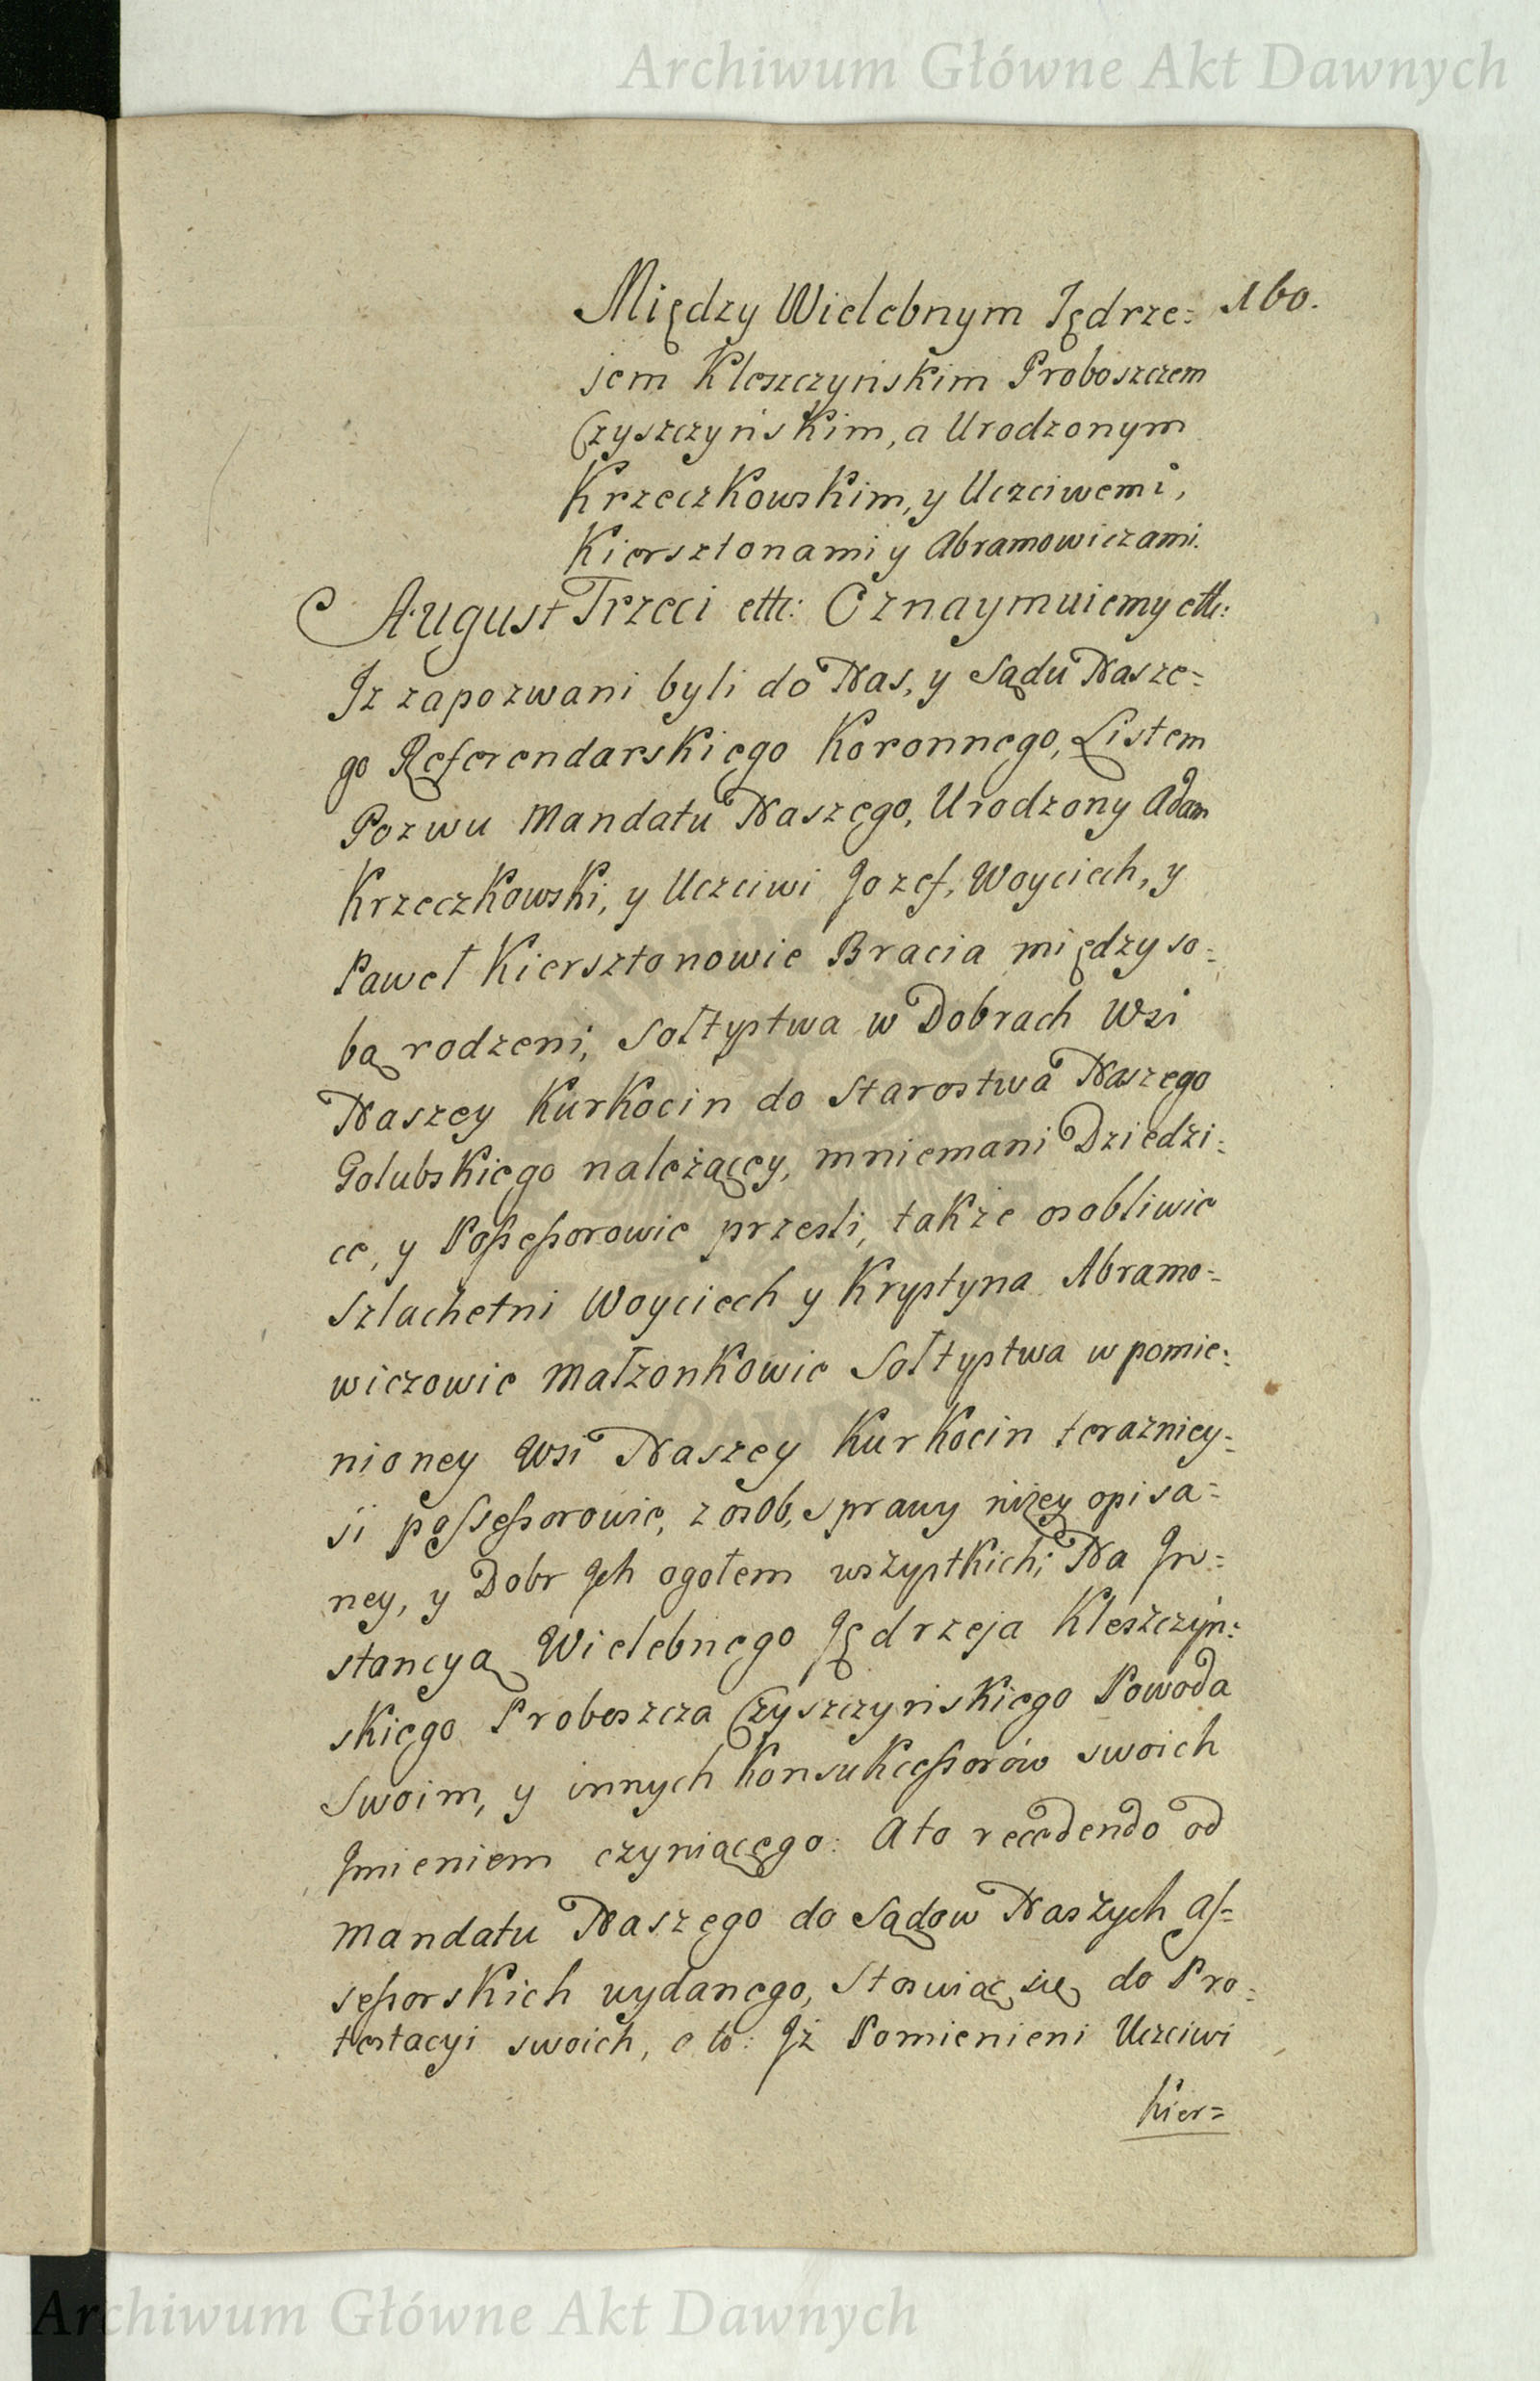 Archiwum Główne Akt Dawnych
160.
Między Wielebnym Jędrze=
jem Kleszczyńskim Proboszczem
Czyszczyńskim, a Urodzonym
Krzeczkowskim, y Uczciwemi,
Kiersztonami y Abramowiczami.
August Trzeci ettc: Oznaymuiemy ettc:
Jz zapozwani byli do Nas, y Sądu Nasze=
go Referendarskiego Koronnego, Listem
Pozwu Mandatu Naszego, Urodzony Adam
Krzeczkowski, y Uczciwi Jozef, Woyciech, y
Paweł Kiersztonowie Bracia między so=
bą rodzeni, Sołtystwa w Dobrach Wsi
Naszey Kurkocin do Starostwa Naszego
Golubskiego należącey, mniemani Dziedzi=
ce, y Possessorowie przesli, także osobliwie
Szlachetni Woyciech y Krystyna Abramo=
wiczowie Małzonkowie Sołtystwa w pomie=
nioney Wsi Naszey Kurkocin terazniey=
si possessorowie, z osob, sprawy niżey opisa=
ney, y Dobr Jch ogołem wszystkich; Na Jn=
stancyą Wielebnego Jędrzeja Kleszczyń=
skiego Proboszcza Czyszczyńskiego Powoda
Swoim, y innych Konsukcessorów swoich
Jmieniem czyniącego: A to recedendo od
Mandatu Naszego do Sądow Naszych As=
sessorskich wydanego, Stosuiąc się do Pro=
testacyi swoich, o to: Jż Pomienieni Uczciwi
Kier=
Archiwum Główne Akt Dawnych